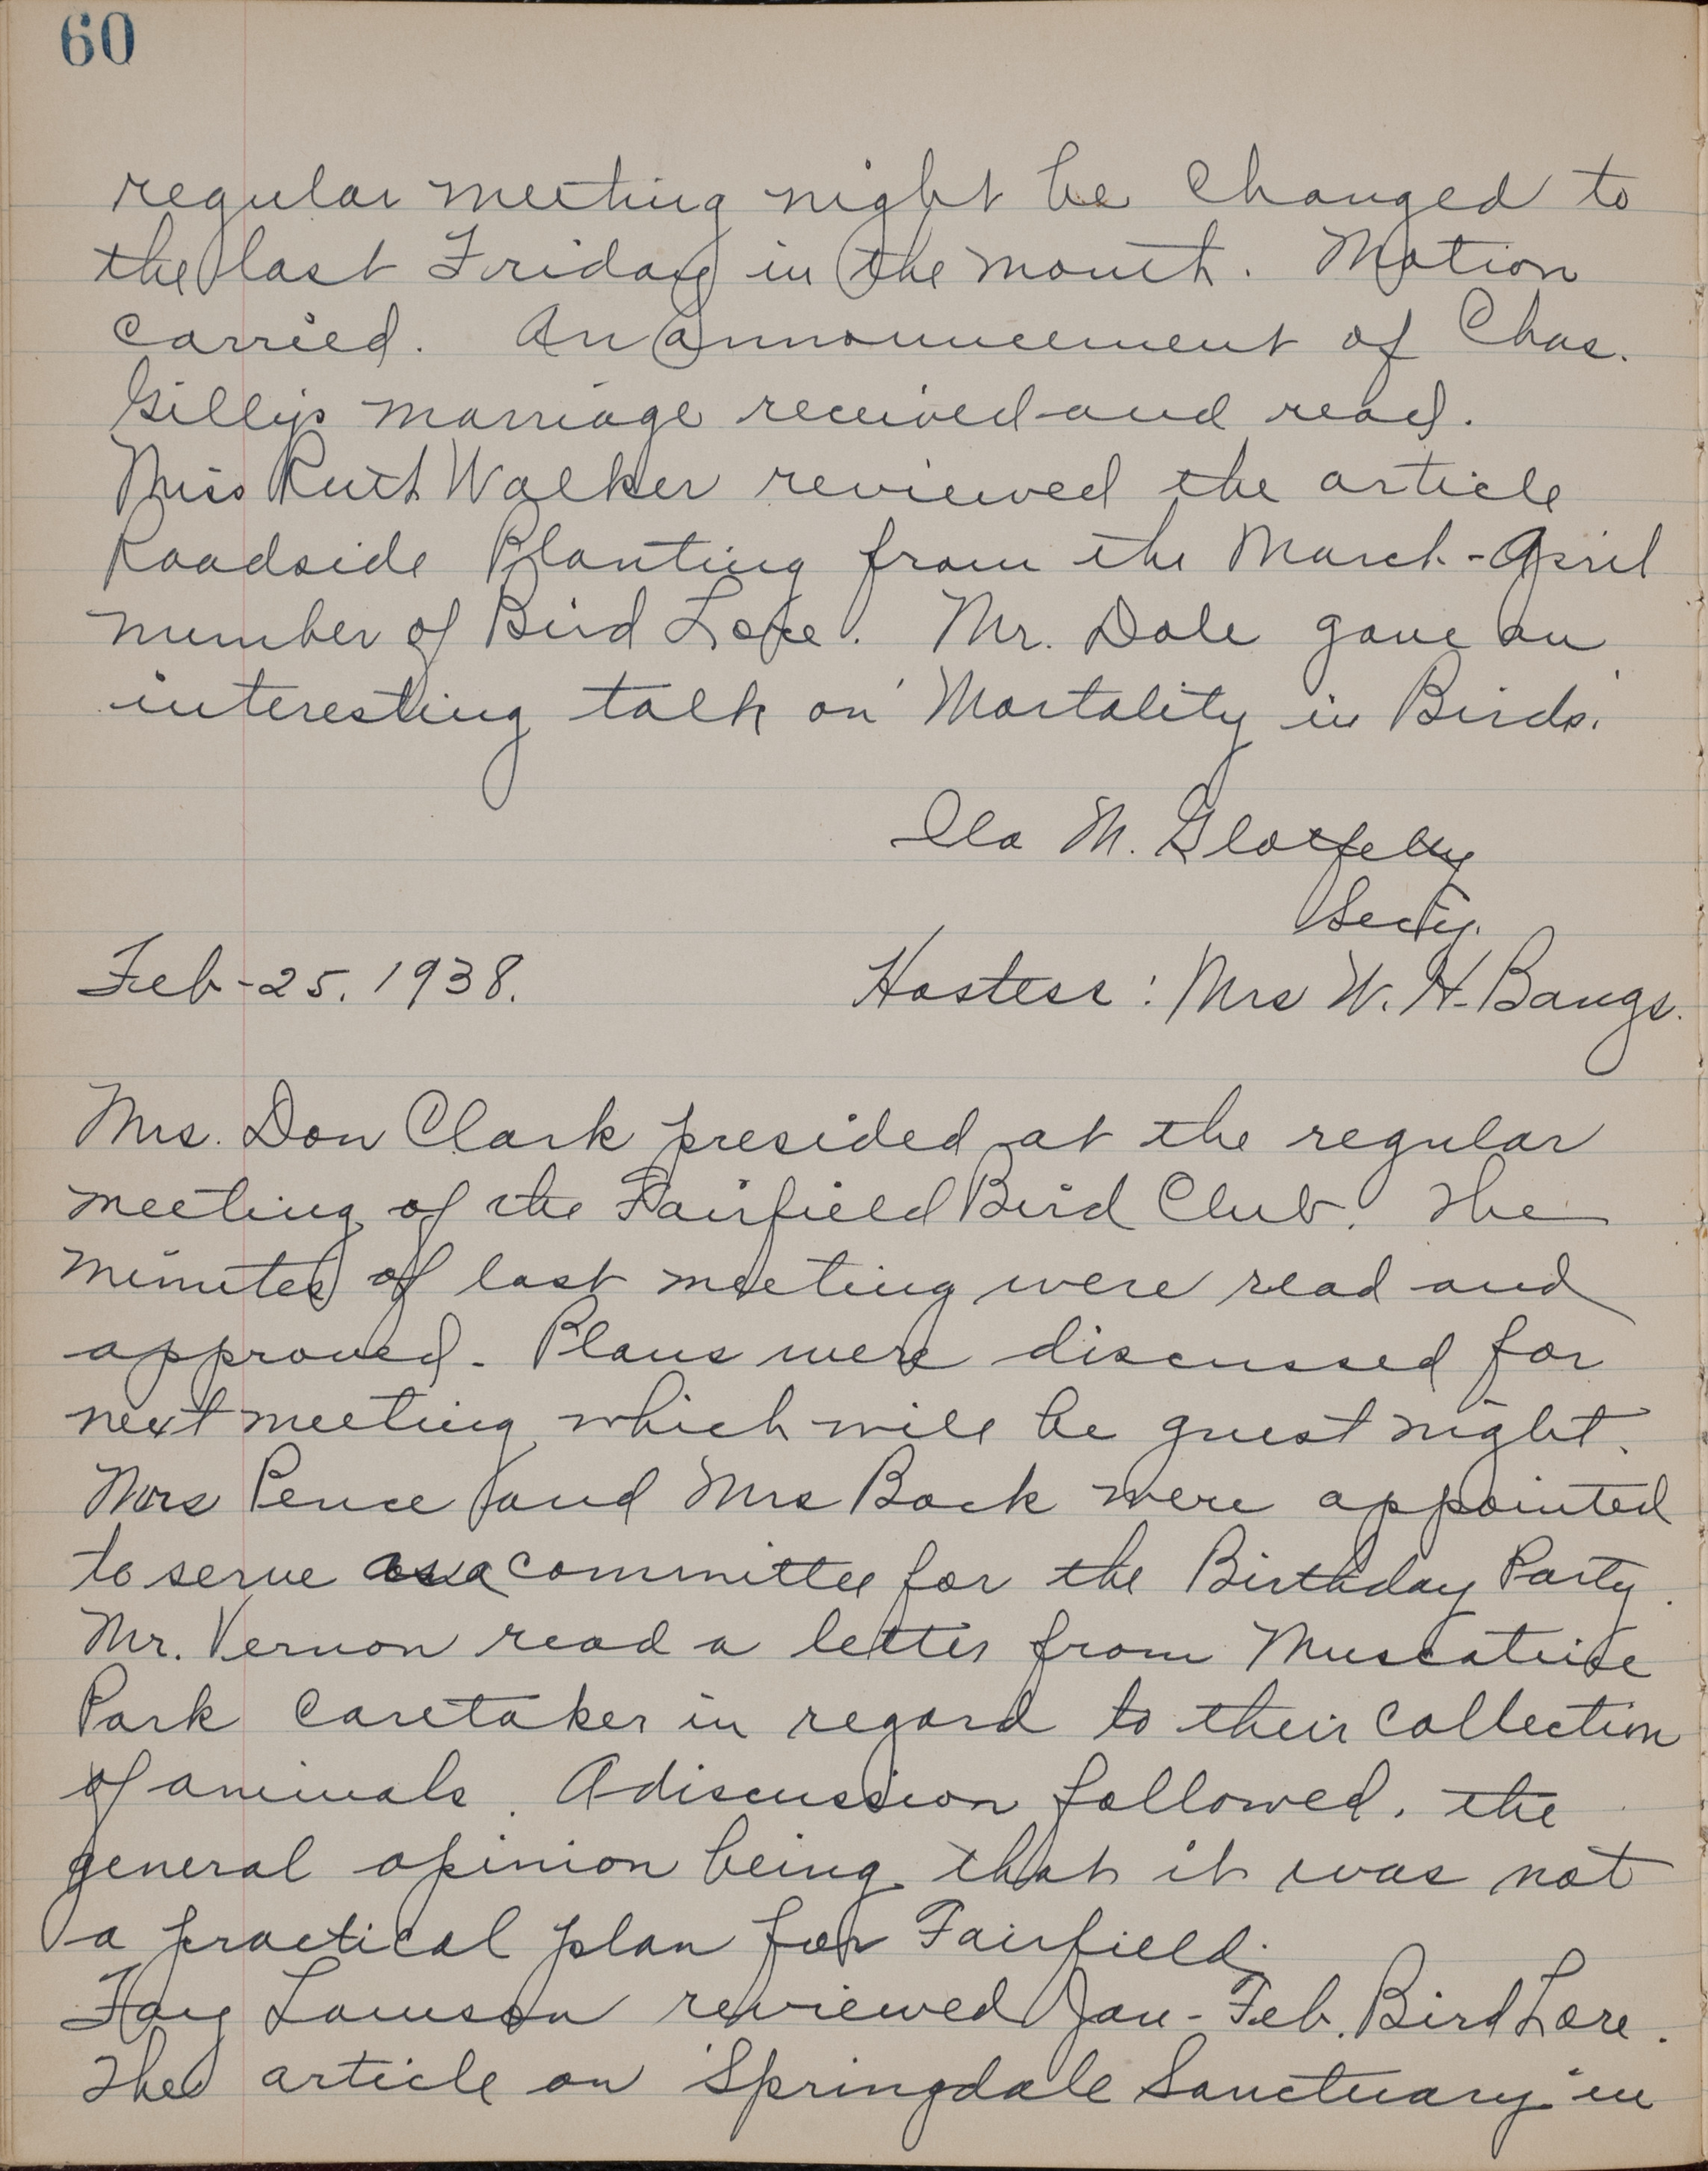 60
regular meeting night be changed to
the last Friday in the month. Motion
carried. An announcement of Chas.
Gilly's marriage received and read.
Miss Ruth Walker reviewed the article
Roadside Planting from the March-April
number of Bird Lore. Mr. Dole gave an
interesting talk on 'Mortality in Birds.'
Ila M. Glotfelty
Sec'y.
Feb-25. 1938.
Hostess: Mrs W. H. Bangs.
Mrs. Don Clark presided at the regular
meeting of the Fairfield Bird Club. The
minutes of last meeting were read and
approved. Plans were discussed for
next meeting which will be guest night.
Mrs Pence and Mrs Back were appointed
to serve as a committee for the Birthday Party.
Mr. Vernon read a letter from Muscatine
Park caretaker in regard to their collection
of animals. A discussion followed, the
general opinion being that it was not
a practical plan for Fairfield.
Fay Lawson reviewed Jan-Feb. Bird Lore.
The article on 'Springdale Sanctuary' in